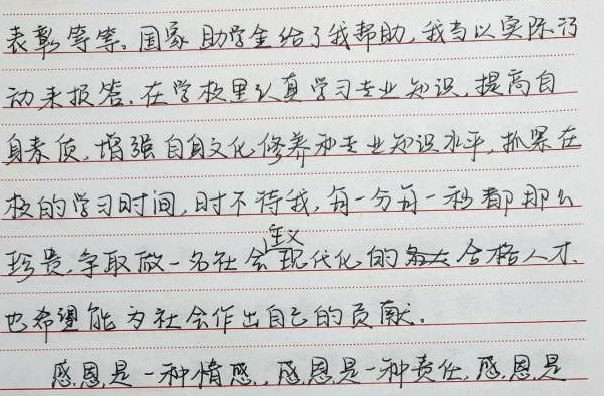 表彰等等。国家助学金给了我帮助,我当以实际行
动来报答。在学校里认真学习专业知识,提高自
身素质,增强自身文化修养和专业知识水平,抓紧在
校的学习时间,时不待我,每一分每一秒都那么
珍贵,争取做一名社会主义现代化的合格人才,
也希望能为社会作出自己的贡献。
感恩是一种情感,感恩是一种责任,感恩是